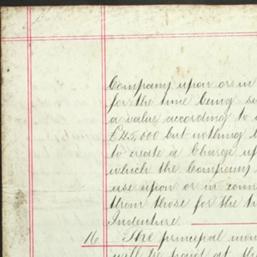 Company upon or in
for the time being su
a value according to
£45,000 but nothing
to create a Charge up
which the Company
use upon or in conn
them those for the t
Indenture.
16 The principal mon
will be paid at the